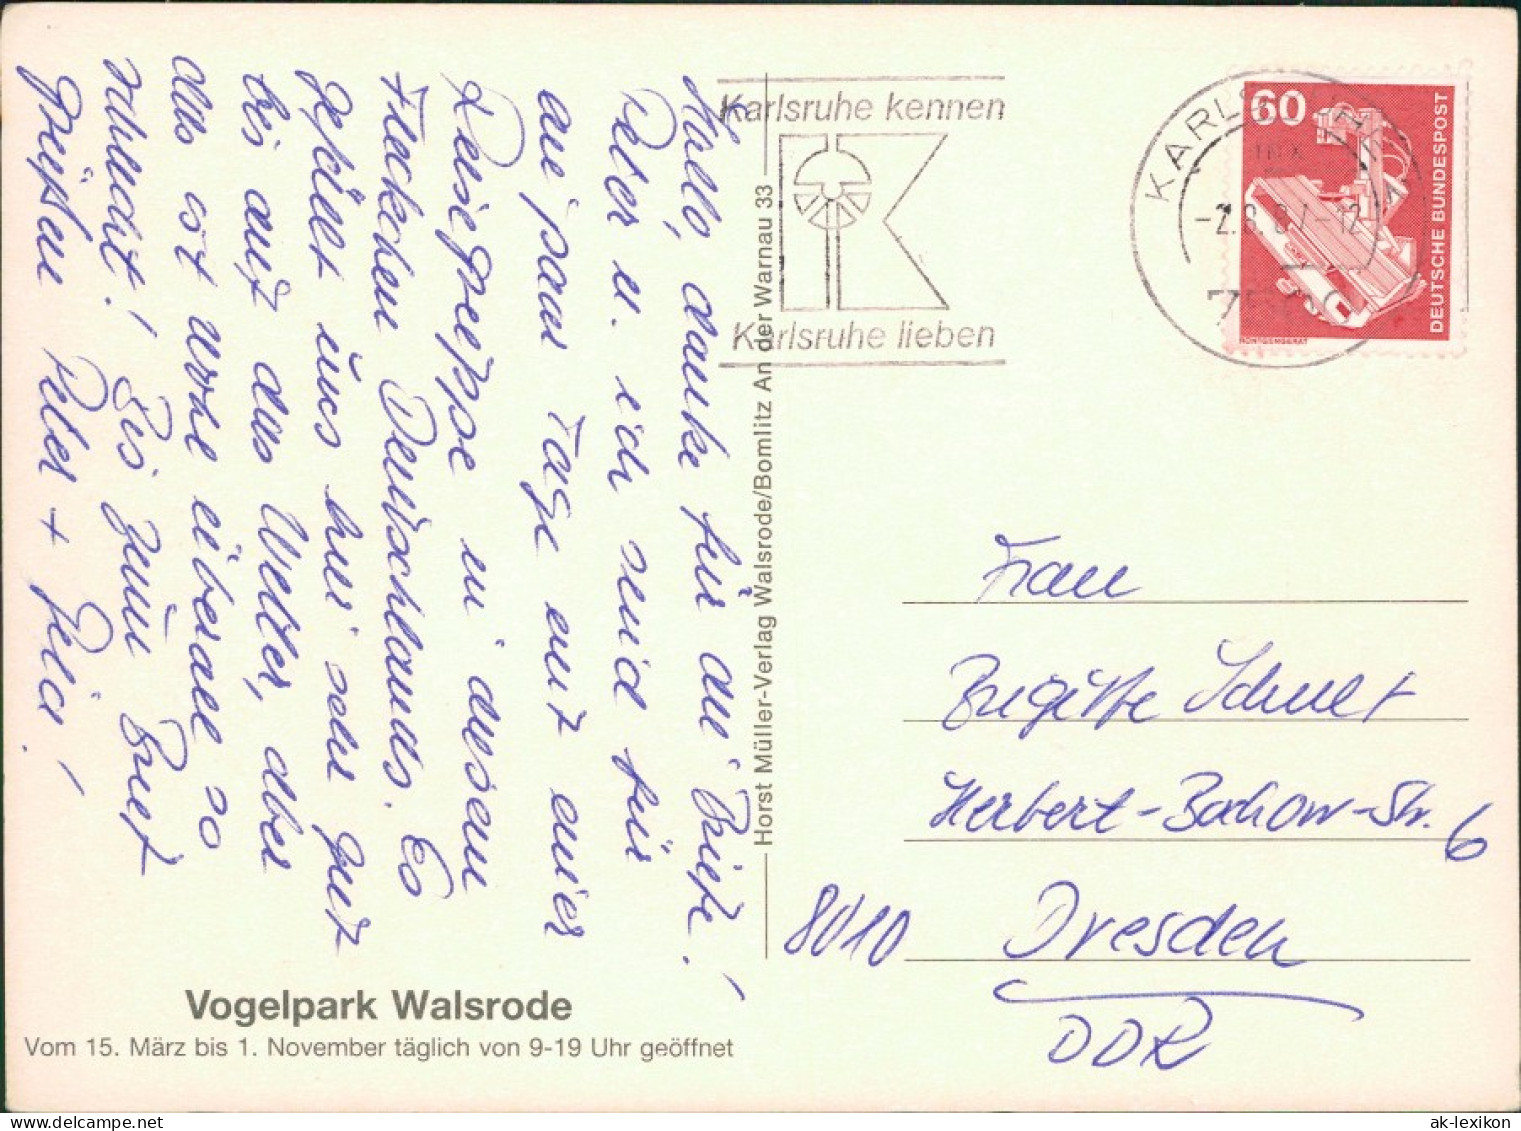 Hallo, danke für die Briefe!
Peter u. ich sind für
ein paar Tage mit einer
Reisegruppe in diesem
Fleckchen Deutschlands. Es
gefällt uns hier sehr gut
bis auf das Wetter, aber
das ist wohl überall so
schlecht! Bis zum Brief
grüßen Peter +
Vogelpark Walsrode
Vom 15. März bis 1. November täglich von 9-19 Uhr geöffnet
Horst Müller-Verlag Walsrode/Bomlitz An der Warnau 33
Karlsruhe kennen
Karlsruhe lieben
KARLSRUHE
-2.8.8
-12
60
DEUTSCHE BUNDESPOST
RÖNTGENGERÄT
Frau
Brigitte
Herbert-Bochow-Str. 6
8010 Dresden
DDR
ak-lexikon